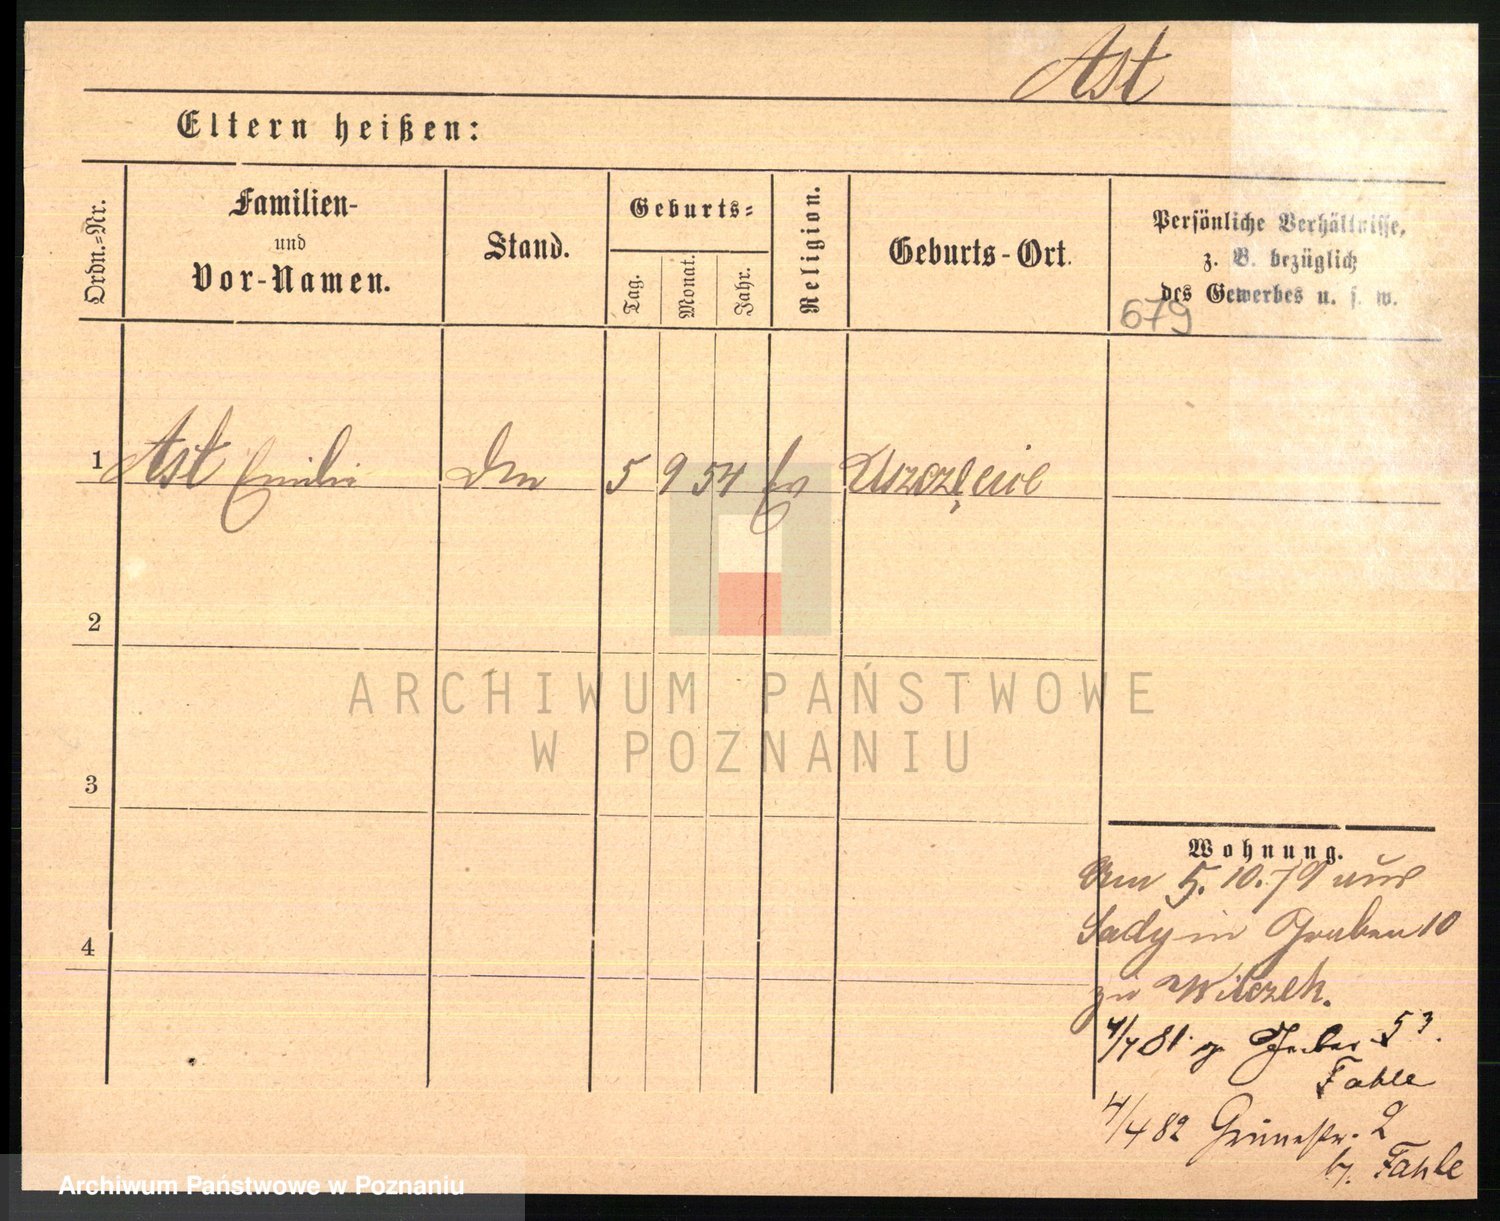 Ast
Eltern heißen:
Ordn.=Nr.
Familien-
und
Vor-Namen.
Stand.
Geburts=
Tag.
Monat.
Jahr.
Religion.
Geburts-Ort.
Persönliche Verhältnisse,
z. B. bezüglich
des Gewerbes u. s. w.
679
1 Ast Emilie 5 9 54 Ev
2
3
4
ARCHIWUM PAŃSTWOWE
W POZNANIU
Wohnung.
Am 5.10.79 aus
Sady in Graben 10
zu Wilczek.
4/7 81
Fahle
4/4 82 Grünestr. 2
b. Fahle
Archiwum Państwowe w Poznaniu